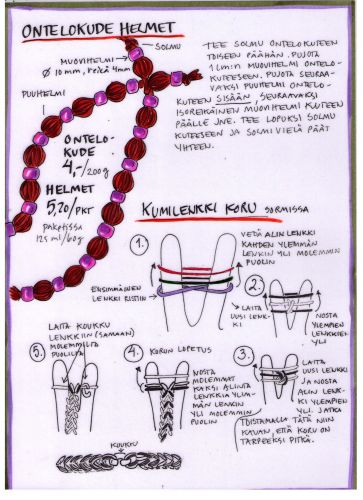 ONTELOKUDE HELMET
SOLMU
MUOVIHELMI
Ø 10mm, reikä 4mm
PUUHELMI
TEE SOLMU ONTELOKUTEEN
TOISEEN PÄÄHÄN. PUJOTA
1 cm:n MUOVIHELMI ONTELO-
KUTEESEEN. PUJOTA SEURAA-
VAKSI PUUHELMI ONTELO-
KUTEEN SISÄÄN, SEURAAVAKSI
ISOREIKÄINEN MUOVIHELMI KUTEEN
PÄÄLLE JNE. TEE LOPUKSI SOLMU
KUTEESEEN JA SOLMI VIELÄ PÄÄT
YHTEEN.
ONTELO-
KUDE
4,-/200g
HELMET
5,20/PKT
paketissa
125 ml/60g
KUMILENKKI KORU SORMISSA
1.
VEDÄ ALIN LENKKI
KAHDEN YLEMMÄN
LENKIN YLI MOLEMMIN
PUOLIN
ENSIMMÄINEN
LENKKI RISTIIN
2.
LAITA
UUSI LENK-
KI
NOSTA
YLEMPIEN
LENKKIEN
YLI
5.
LAITA KOUKKU
LENKKIIN (SAMAAN)
MOLEMMILTA
PUOLILTA
4.
KORUN LOPETUS
NOSTA
MOLEMMAT
KAKSI ALINTA
LENKKIÄ YLIM-
MÄN LENKIN
YLI MOLEMMIN
PUOLIN
3.
LAITA
UUSI LENKKI
JA NOSTA
ALIN LENK-
KI YLEMPIEN
YLI. JATKA
TOISTAMALLA TÄTÄ NIIN
KAUAN, ETTÄ KORU ON
TARPEEKSI PITKÄ.
KOUKKU